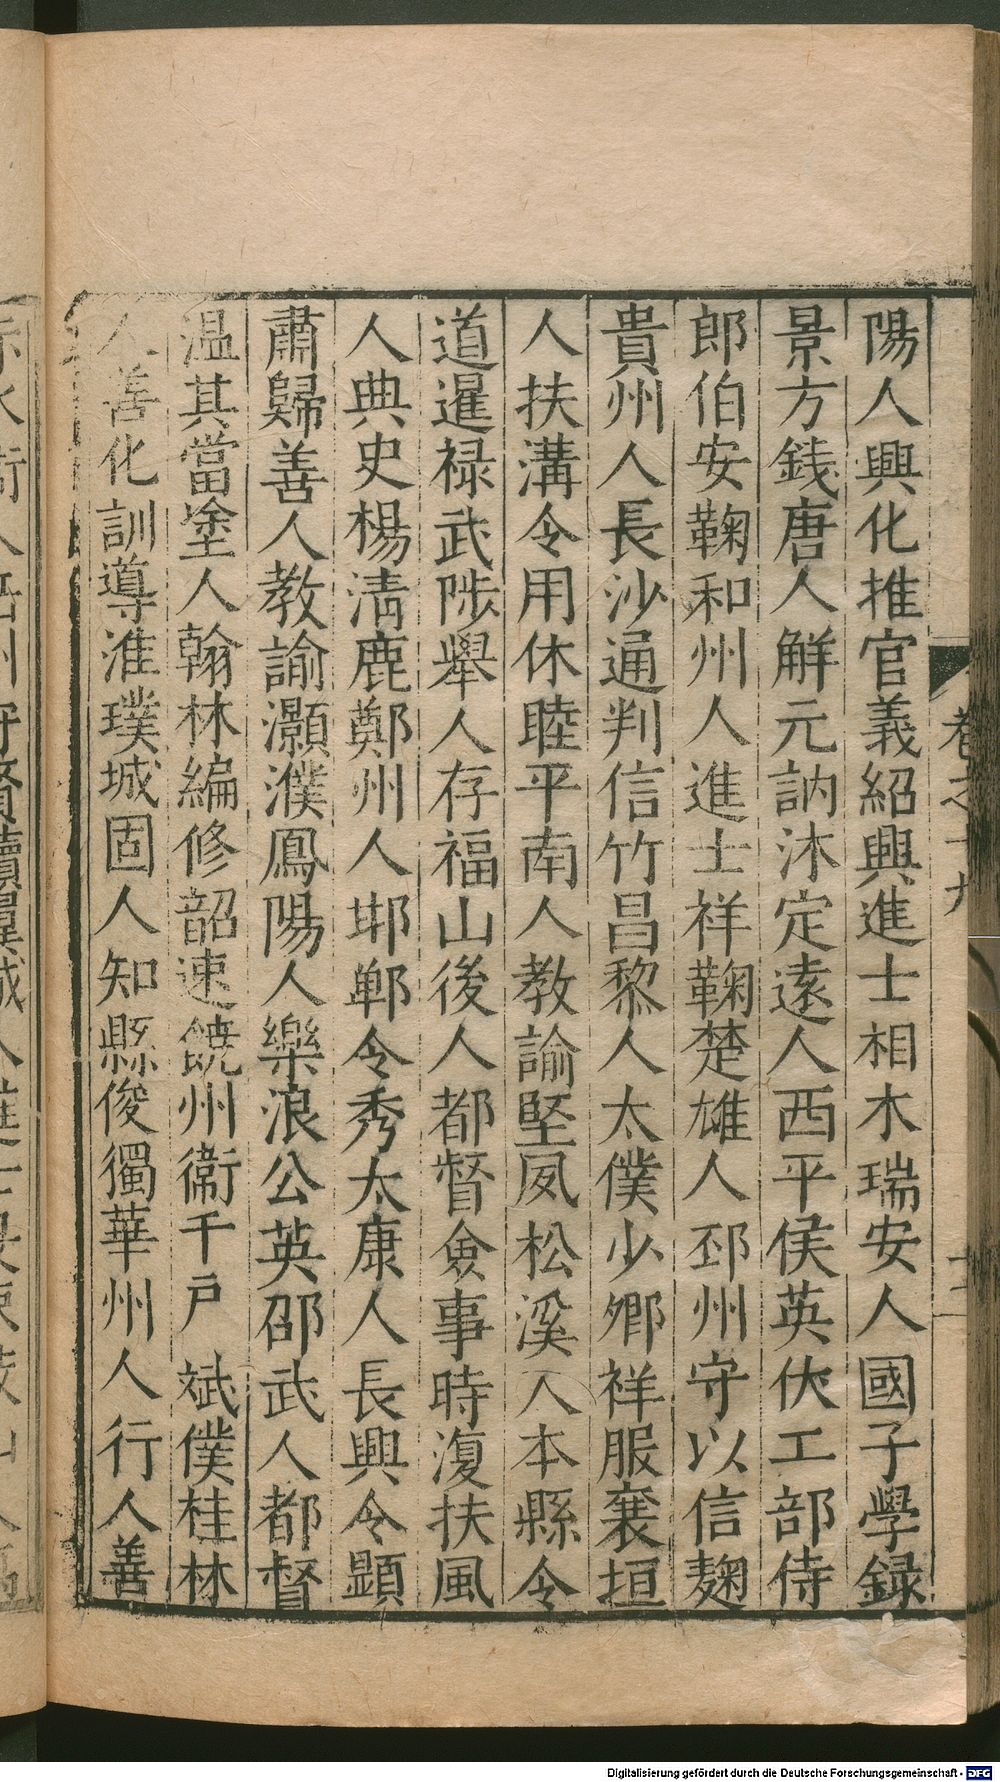 陽人興化推官義紹興進士相木瑞安人國子學録
景方錢唐人解元訥沐定遠人西平侯英伏工部侍
郎伯安鞠和州人進士祥鞠楚雄人邳州守以信麹
貴州人長沙通判信竹昌黎人太僕少卿祥服襄垣
人扶溝令用休睦平南人教諭堅夙松溪人本縣令
道暹禄武陟舉人存福山後人都督僉事時復扶風
人典史楊清鹿鄭州人邯鄲令秀太康人長興令顯
肅歸善人教諭灝濮鳳陽人樂浪公英邵武人都督
温其當塗人翰林編修韶速饒州衞千戸斌僕桂林
人善化訓導淮璞城固人知縣俊獨華州人行人善
卷之十九
Digitalisierung gefördert durch die Deutsche Forschungsgemeinschaft - DFG